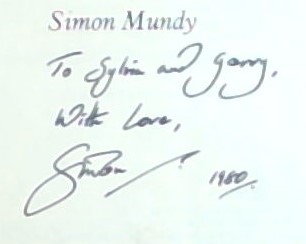 Simon Mundy
To Sylvia and Gerry,
With Love,
Simon 1980.